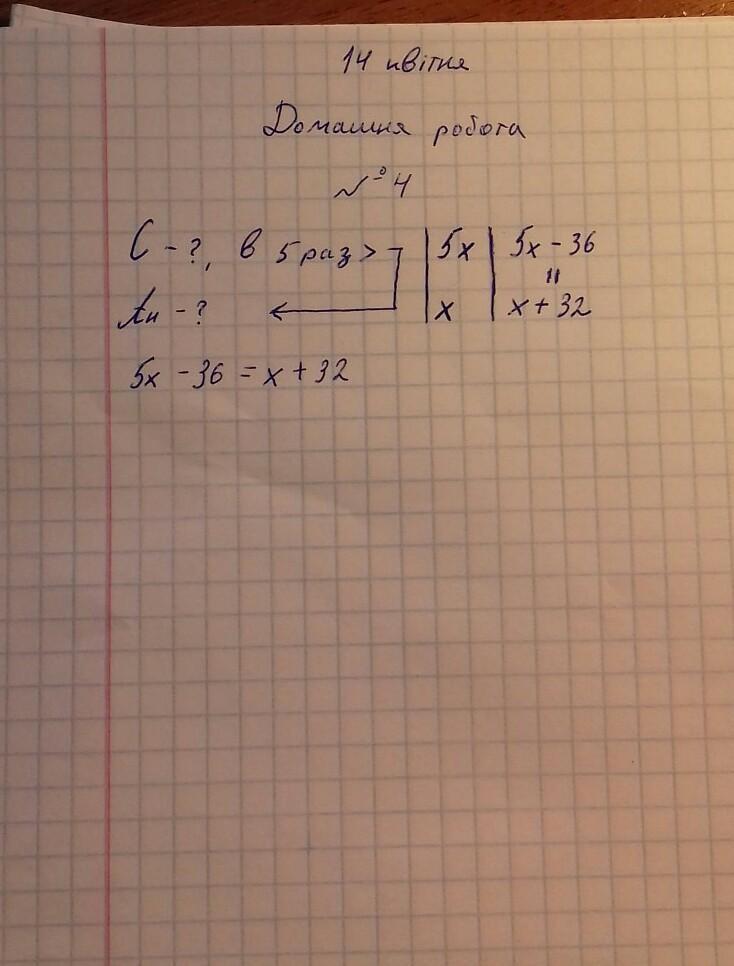 14 квітня
Домашня робота
№ 4
С - ?, в 5 раз > | 5x | 5x - 36
=
Ан - ? | x | x + 32
5x - 36 = x + 32